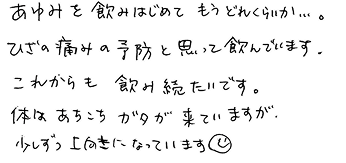 あゆみを飲みはじめて もうどれくらいか…。
ひざの痛みの予防と思って飲んでいます.
これからも 飲み続たいです。
体は あちこち ガタが 来ていますが.
少しずつ 上向きになっています